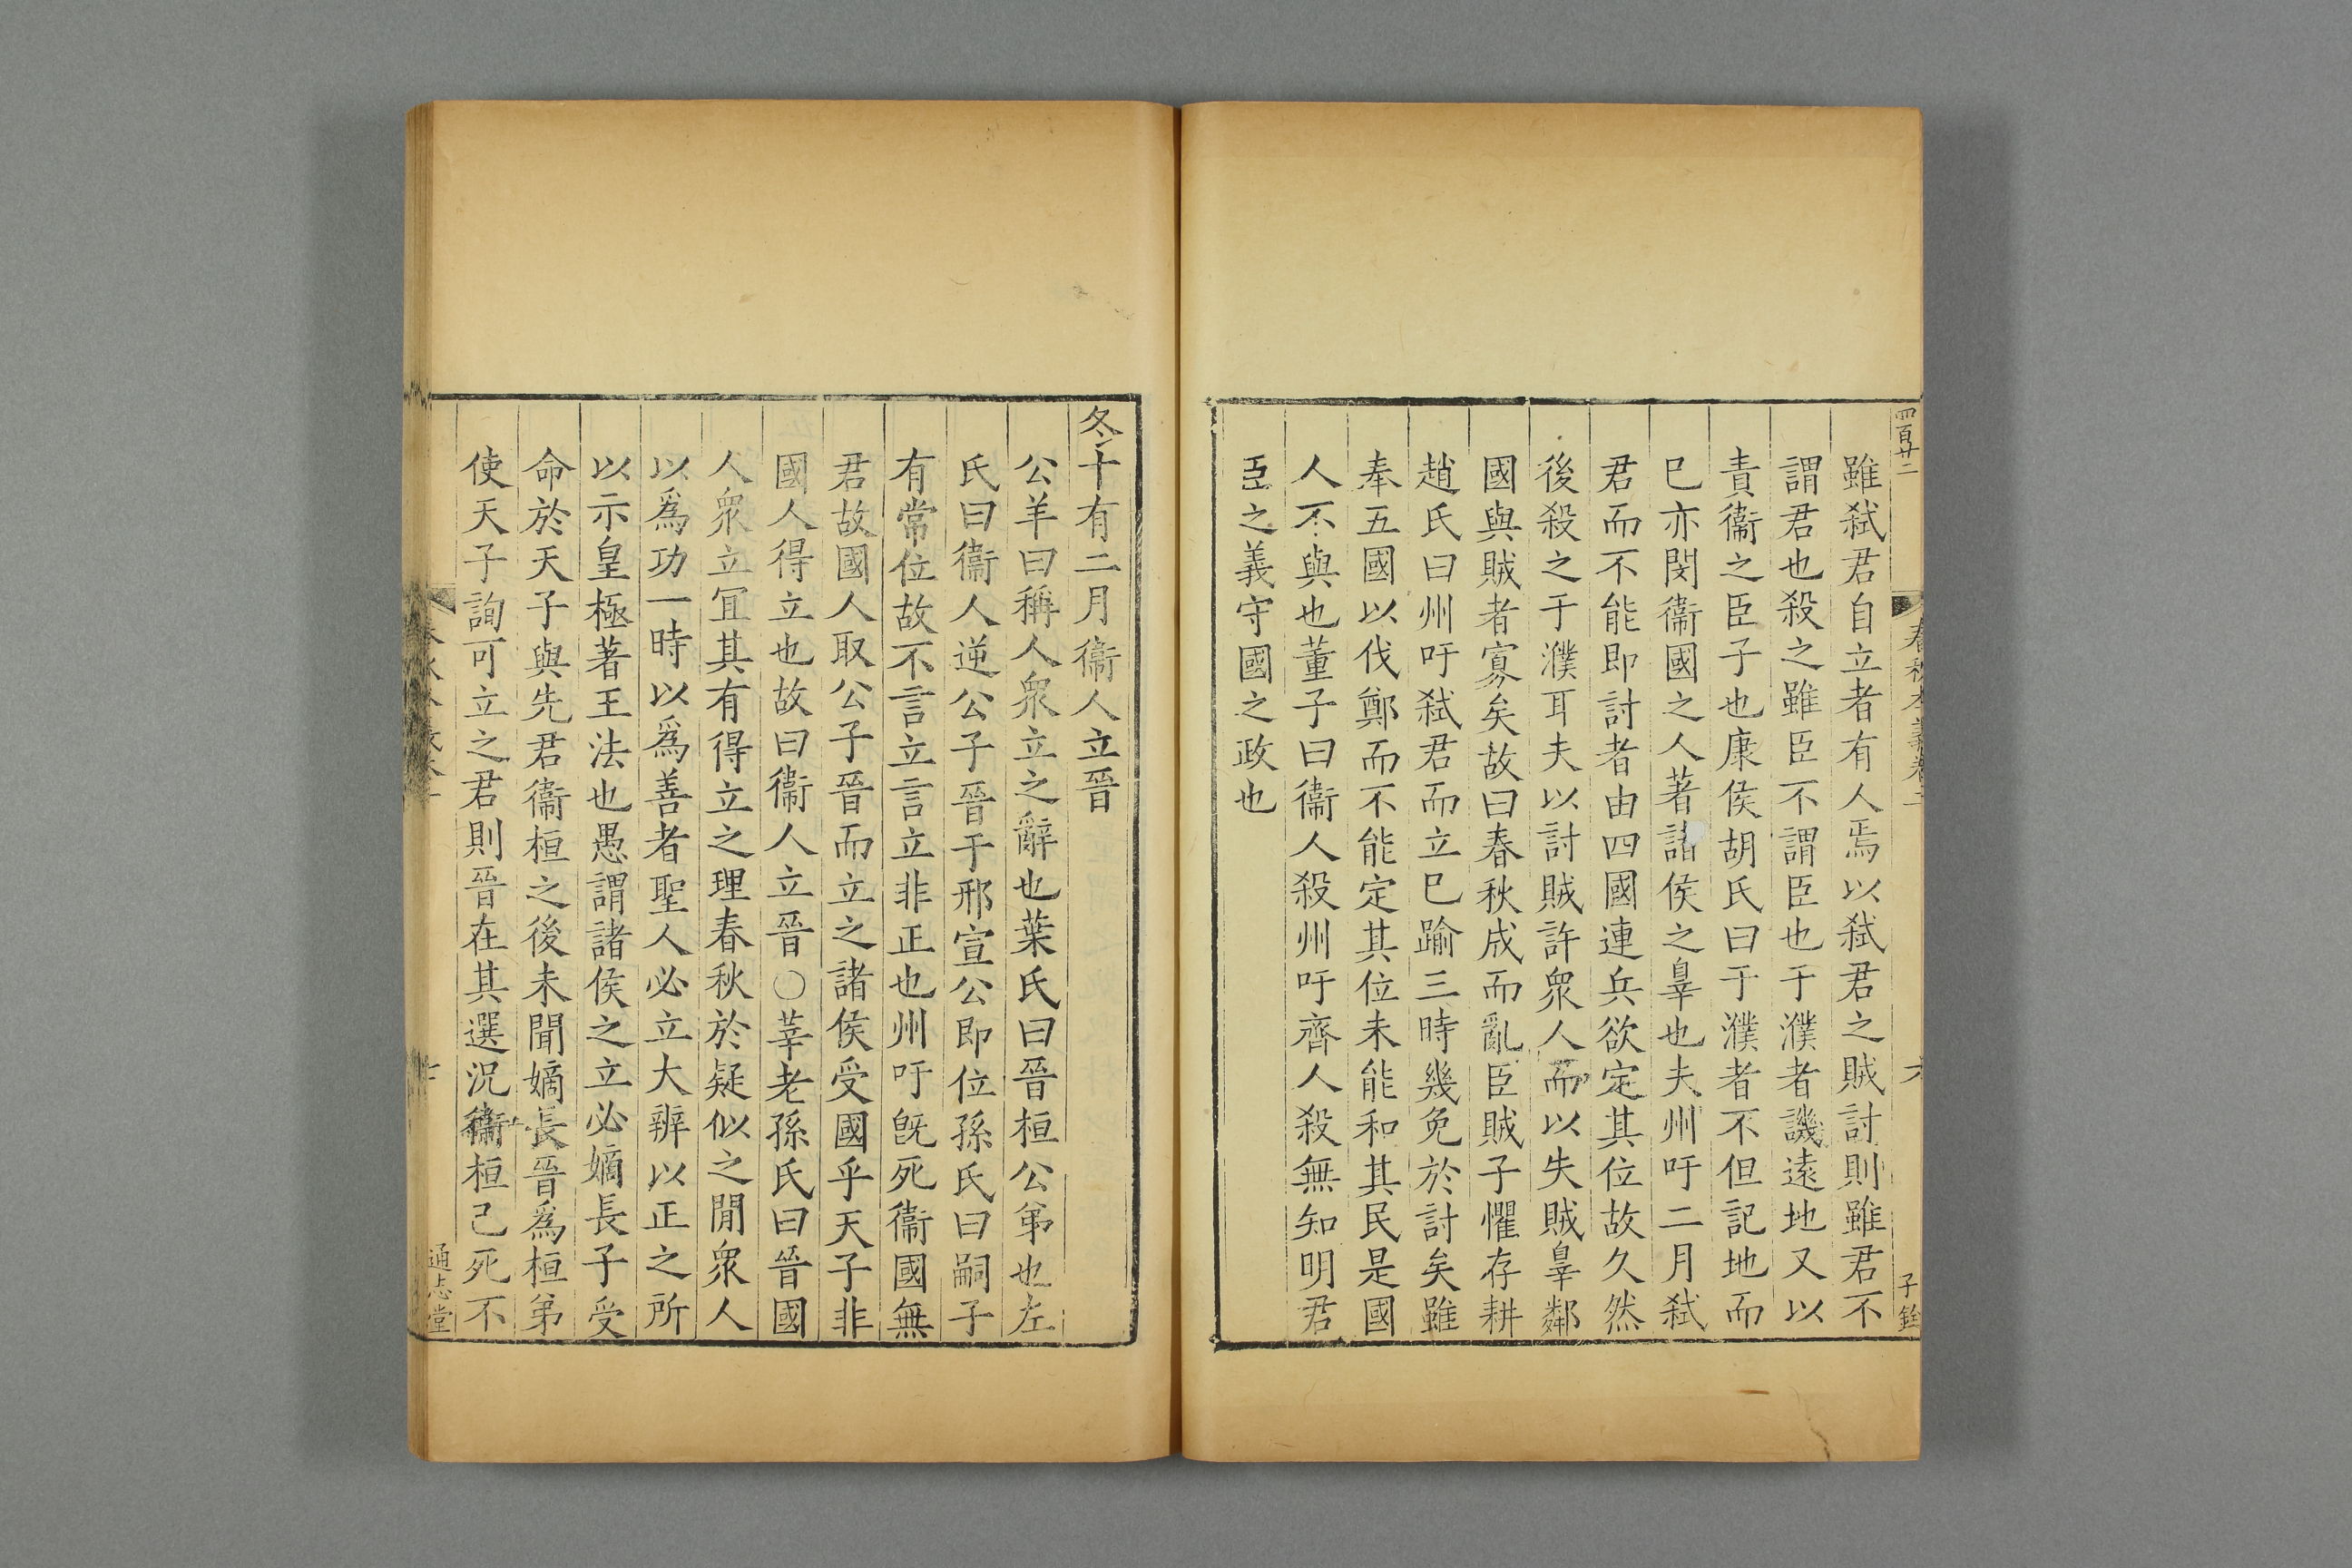 四百廿二
春秋本義卷二
六
子銓
雖弑君自立者有人焉以弑君之賊討則雖君不
謂君也殺之雖臣不謂臣也于濮者譏遠地又以
責衞之臣子也康侯胡氏曰于濮者不但記地而
已亦閔衞國之人著諸侯之辠也夫州吁二月弑
君而不能即討者由四國連兵欲定其位故久然
後殺之于濮耳夫以討賊許衆人而以失賊辠鄰
國與賊者寡矣故曰春秋成而亂臣賊子懼存耕
趙氏曰州吁弑君而立已踰三時幾免於討矣雖
奉五國以伐鄭而不能定其位未能和其民是國
人不與也董子曰衞人殺州吁齊人殺無知明君
臣之義守國之政也
冬十有二月衞人立晉
公羊曰稱人衆立之辭也葉氏曰晉桓公弟也左
氏曰衞人逆公子晉于邢宣公即位孫氏曰嗣子
有常位故不言立言立非正也州吁旣死衞國無
君故國人取公子晉而立之諸侯受國乎天子非
國人得立也故曰衞人立晉〇莘老孫氏曰晉國
人衆立冝其有得立之理春秋於疑似之閒衆人
以爲功一時以爲善者聖人必立大辨以正之所
以示皇極著王法也愚謂諸侯之立必嫡長子受
命於天子與先君衞桓之後未聞嫡長晉爲桓弟
使天子詢可立之君則晉在其選況衞桓己死不
通志堂